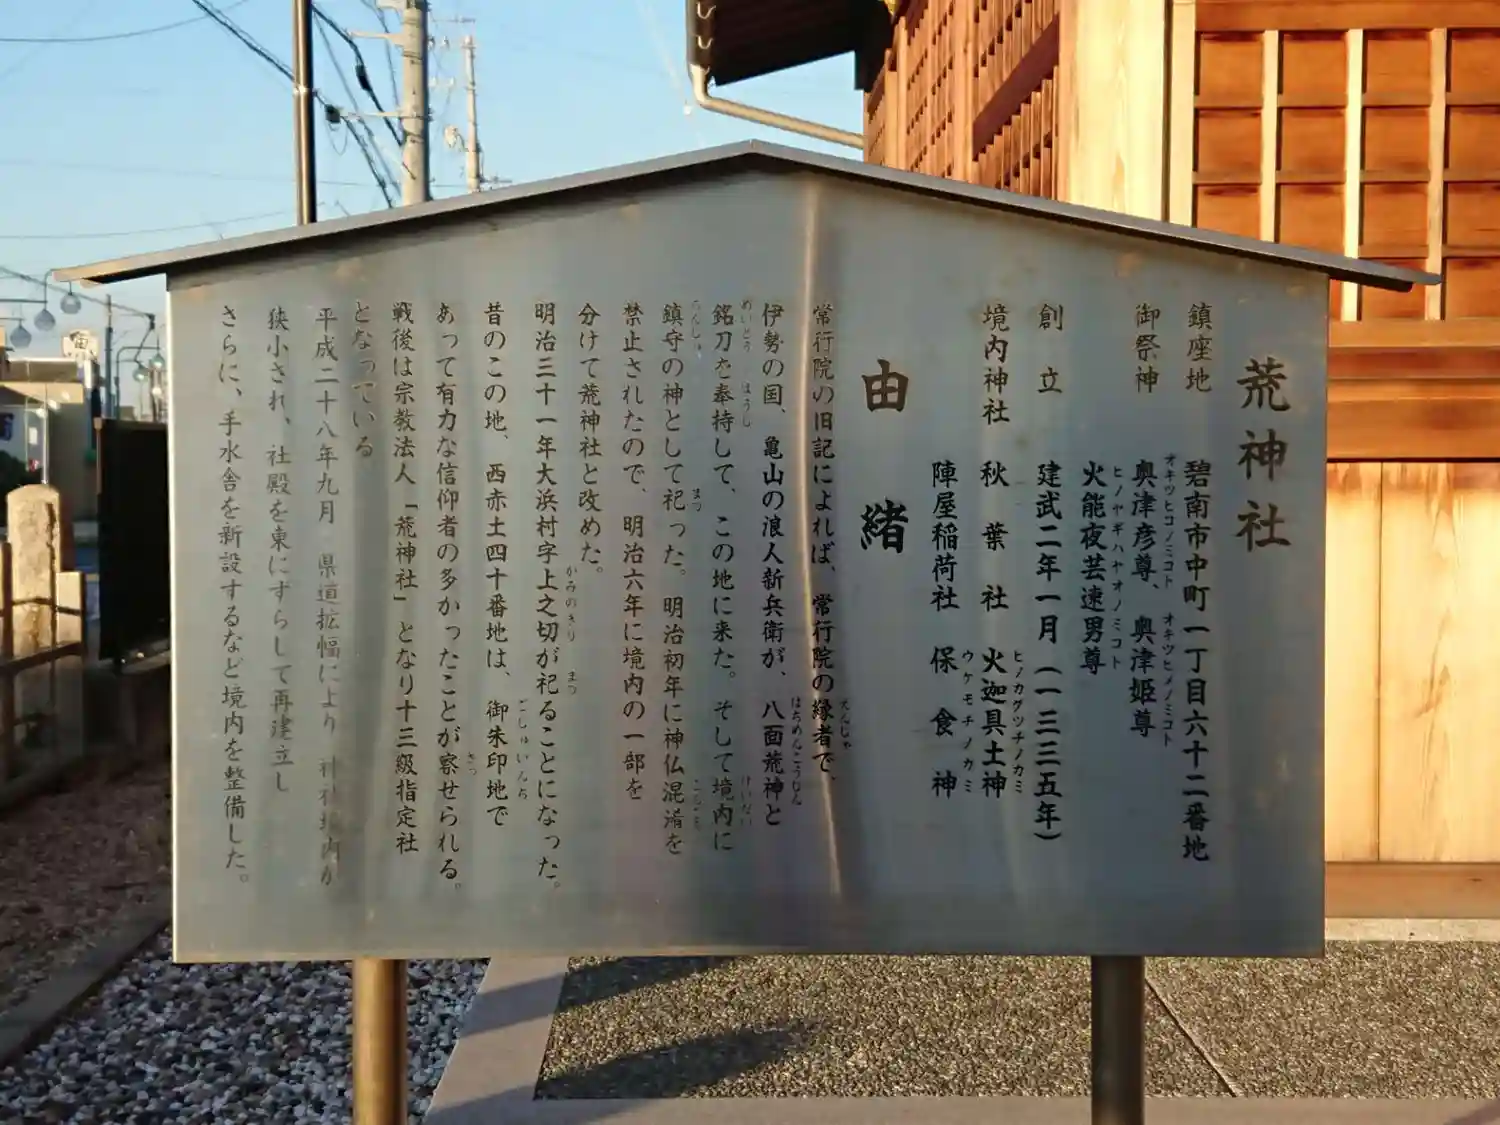 荒神社
鎮座地 碧南市中町一丁目六十二番地
御祭神 奥津彦尊、奥津姫尊
オキツヒコノミコト オキツヒメノミコト
火能夜芸速男尊
ヒノヤギハヤオノミコト
創立 建武二年一月(一三三五年)
境内神社 秋葉社 火迦具土神
ヒノカグツチノカミ
陣屋稲荷社 保食神
ウケモチノカミ
由緒
常行院の旧記によれば、常行院の縁者で、
えんじゃ
伊勢の国、亀山の浪人新兵衛が、八面荒神と
はちめんこうじん
銘刀を奉持して、この地に来た。そして境内に
めいとう ほうし けいだい
鎮守の神として祀った。明治初年に神仏混淆を
ちんじゅ まつ こんこう
禁止されたので、明治六年に境内の一部を
分けて荒神社と改めた。
明治三十一年大浜村字上之切が祀ることになった。
かみのきり まつ
昔のこの地、西赤土四十番地は、御朱印地で
ごしゅいんち
あって有力な信仰者の多かったことが察せられる。
さっ
戦後は宗教法人「荒神社」となり十三級指定社
となっている
平成二十八年九月 県道拡幅により 神社境内が
狭小され、社殿を東にずらして再建立し
さらに、手水舎を新設するなど境内を整備した。